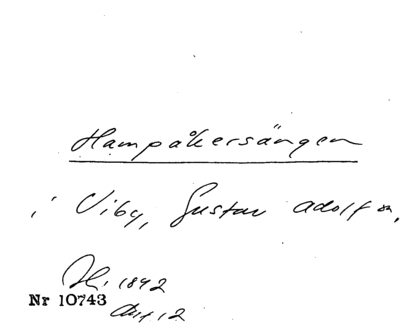 Hampåkersängen
i Viby, Gustav Adolf sn,
1842
Nr 10743
12